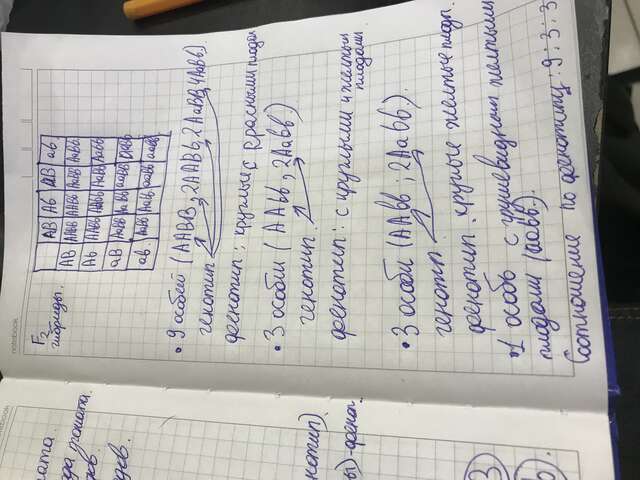 notebook
F2
гибриды.
AB Ab aB ab
AB AABB AABb AaBB AaBb
Ab AABb AAbb AaBb Aabb
aB AaBB AaBb aaBB aaBb
ab AaBb Aabb aaBb aabb
• 9 особей (AABB; 2AABb, 2AaBB, 4AaBb)
генотип
фенотип: круглые с красными плодами
• 3 особи (AAbb; 2Aabb)
генотип
фенотип: с круглыми и желтыми
плодами
• 3 особи (AAbb; 2Aabb).
генотип
фенотип: круглые желтые плоды.
• 1 особь с грушевидными желтыми
плодами (aabb).
Соотношение по фенотипу: 9:3:3